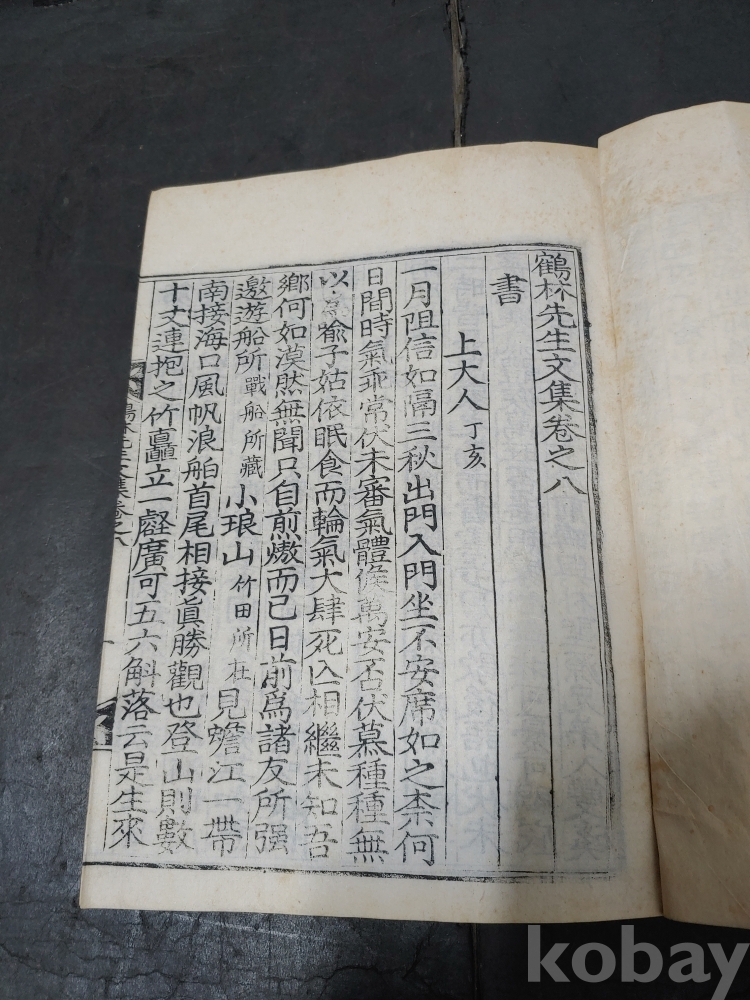 鶴林先生文集卷之八
書
上大人 丁亥
一月阻信如隔三秋出門入門坐不安席如之柰何
日間時氣乖常伏未審氣體候萬安否伏慕種種無
以爲喻子姑依眠食而輪氣大肆死亾相繼未知吾
鄕何如漠然無聞只自煎熬而已日前爲諸友所强
邀遊船所 戰船所藏 小琅山 竹田所在 見蟾江一帶
南接海口風帆浪舶首尾相接眞勝觀也登山則數
十丈連抱之竹矗立一壑廣可五六斛落云是生來
kobay